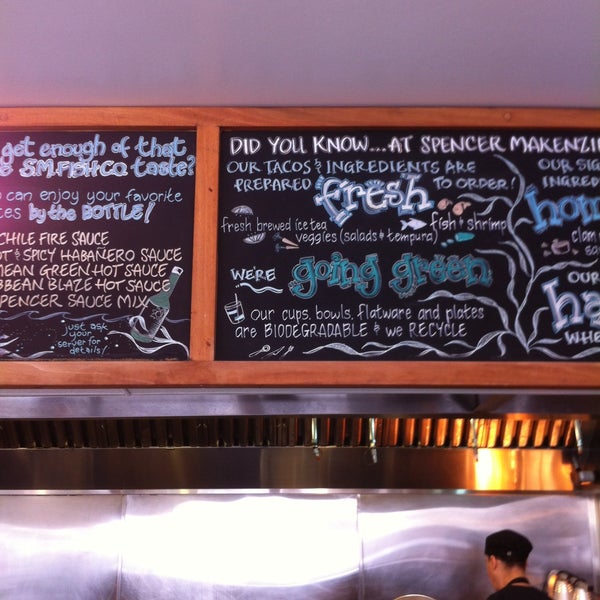 get enough of that
S.M.FISH CO. taste?
can enjoy your favorite
by the BOTTLE!
CHILE FIRE SAUCE
& SPICY HABANERO SAUCE
MEAN GREEN HOT SAUCE
BBEAN BLAZE HOT SAUCE
SPENCER SAUCE MIX
just ask
your
server for
details!
DID YOU KNOW...AT SPENCER MAKENZIE
OUR TACOS & INGREDIENTS ARE
PREPARED fresh TO ORDER!
fresh brewed ice tea fish & shrimp
veggies (salads & tempura)
WE'RE going green
our cups, bowls, flatware and plates
are BIODEGRADABLE & we RECYCLE
OUR SIG
INGRED
hom
clam
OUR
ha
WHE